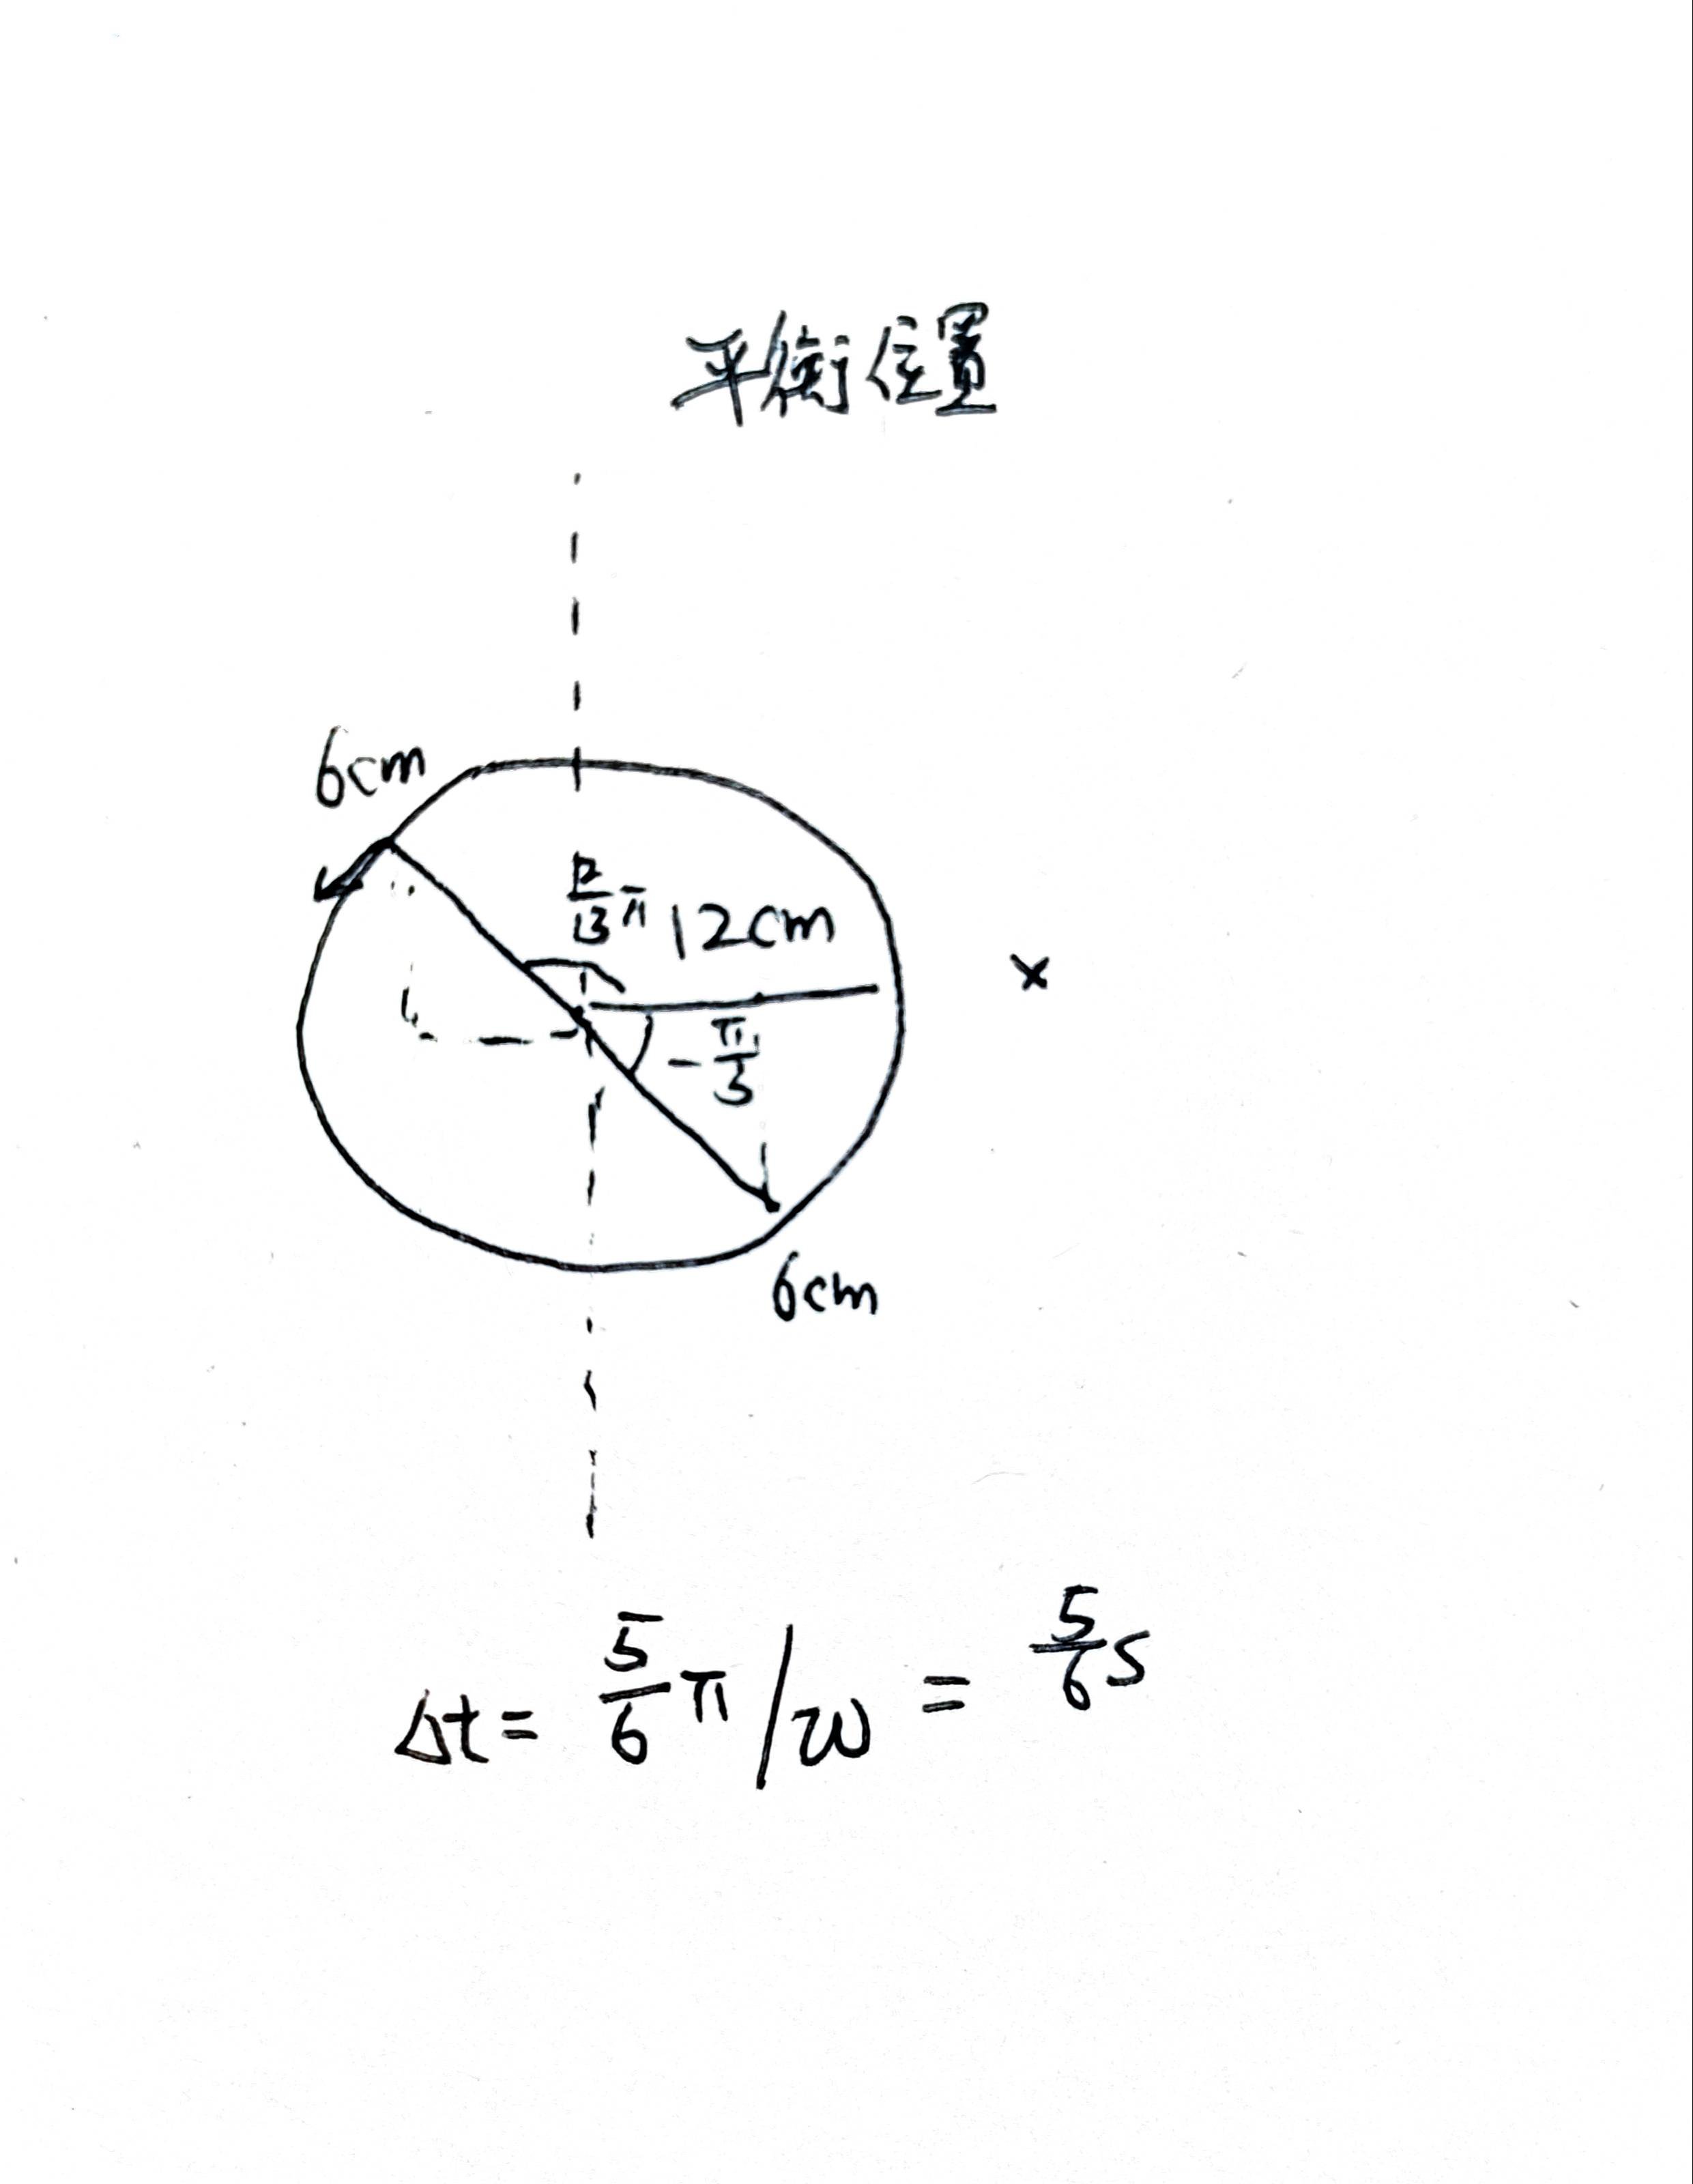 平衡位置
6cm
12/13 π 12cm
x
-π/3
6cm
Δt = 5/6 π / ω = 5/6 s